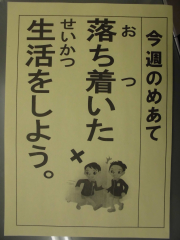 今週のめあて
落ち着いた
おつ
生活をしよう。
せいかつ